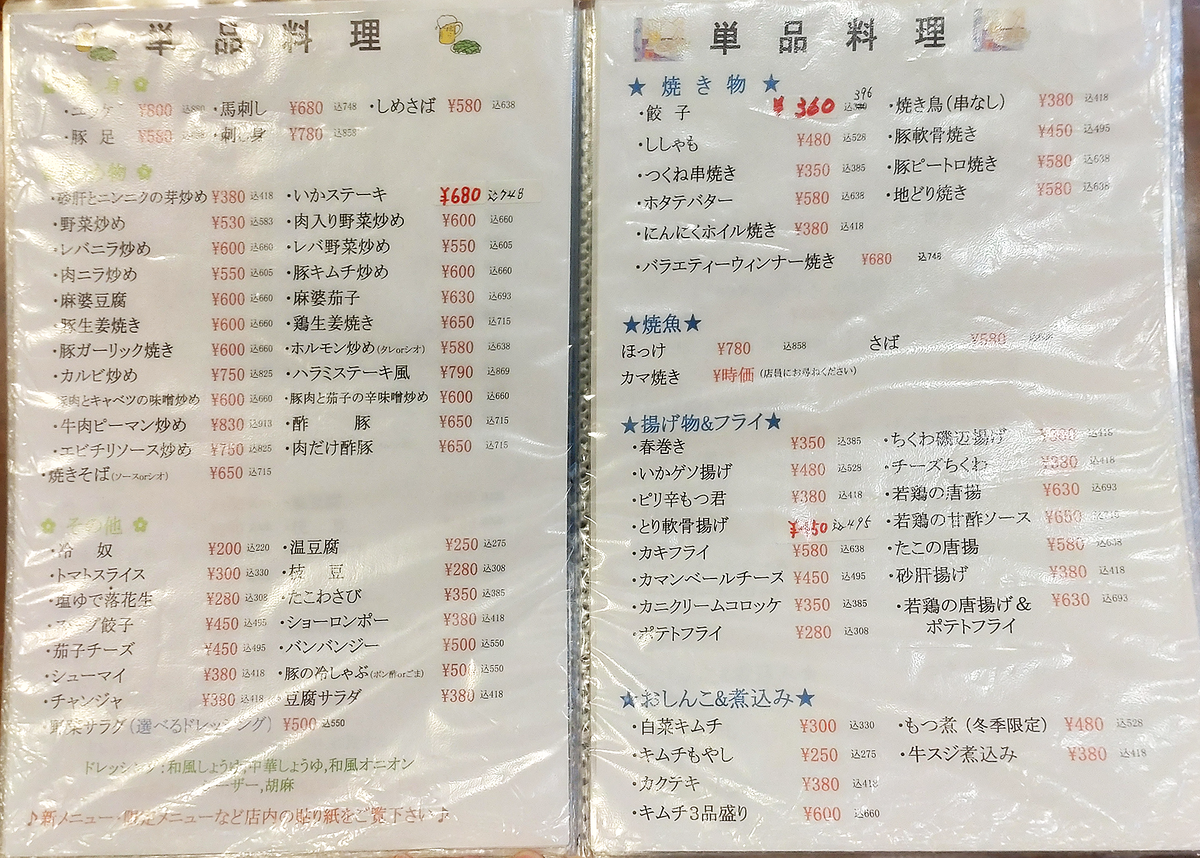 単品料理
身
・ユッケ ¥800 ・馬刺し ¥680 込748 ・しめさば ¥580 込638
・豚足 ¥580 ・刺し身 ¥780 込858
物
・砂肝とニンニクの芽炒め ¥380 込418 ・いかステーキ ¥680 込748
・野菜炒め ¥530 込583 ・肉入り野菜炒め ¥600 込660
・レバニラ炒め ¥600 込660 ・レバ野菜炒め ¥550 込605
・肉ニラ炒め ¥550 込605 ・豚キムチ炒め ¥600 込660
・麻婆豆腐 ¥600 込660 ・麻婆茄子 ¥630 込693
・豚生姜焼き ¥600 込660 ・鶏生姜焼き ¥650 込715
・豚ガーリック焼き ¥600 込660 ・ホルモン炒め(タレorシオ) ¥580 込638
・カルビ炒め ¥750 込825 ・ハラミステーキ風 ¥790 込869
・豚肉とキャベツの味噌炒め ¥600 込660 ・豚肉と茄子の辛味噌炒め ¥600 込660
・牛肉ピーマン炒め ¥830 込913 ・酢豚 ¥650 込715
・エビチリソース炒め ¥750 込825 ・肉だけ酢豚 ¥650 込715
・焼きそば(ソースorシオ) ¥650 込715
その他
・冷奴 ¥200 込220 ・温豆腐 ¥250 込275
・トマトスライス ¥300 込330 ・枝豆 ¥280 込308
・塩ゆで落花生 ¥280 込308 ・たこわさび ¥350 込385
餃子 ¥450 込495 ・ショーロンポー ¥380 込418
・茄子チーズ ¥450 込495 ・バンバンジー ¥500 込550
・シューマイ ¥380 込418 ・豚の冷しゃぶ(ポン酢orごま) ¥500 込550
・チャンジャ ¥380 込418 豆腐サラダ ¥380 込418
・野菜サラダ(選べるドレッシング) ¥500 込550
ドレッシング:和風しょうゆ,中華しょうゆ,和風オニオン
ーザー,胡麻
♪新メニュー・限定メニューなど店内の貼り紙をご覧下さい♪
単品料理
★焼き物★
・餃子 ¥360 込 396 ・焼き鳥(串なし) ¥380 込418
・ししゃも ¥480 込528 ・豚軟骨焼き ¥450 込495
・つくね串焼き ¥350 込385 ・豚ピートロ焼き ¥580 込638
・ホタテバター ¥580 込638 ・地どり焼き ¥580 込638
・にんにくホイル焼き ¥380 込418
・バラエティーウィンナー焼き ¥680 込748
★焼魚★
ほっけ ¥780 込858 さば ¥580
カマ焼き ¥時価(店員にお尋ねください)
★揚げ物&フライ★
・春巻き ¥350 込385 ・ちくわ磯辺揚げ 込418
・いかゲソ揚げ ¥480 込528 ・チーズちくわ ¥380 込418
・ピリ辛もつ君 ¥380 込418 ・若鶏の唐揚 ¥630 込693
・とり軟骨揚げ ¥450 込495 ・若鶏の甘酢ソース ¥650 込715
・カキフライ ¥580 込638 ・たこの唐揚 ¥580 込638
・カマンベールチーズ ¥450 込495 ・砂肝揚げ ¥380 込418
・カニクリームコロッケ ¥350 込385 ・若鶏の唐揚げ& ¥630 込693
・ポテトフライ ¥280 込308 ポテトフライ
★おしんこ&煮込み★
・白菜キムチ ¥300 込330 ・もつ煮(冬季限定) ¥480 込528
・キムチもやし ¥250 込275 ・牛スジ煮込み ¥380 込418
・カクテキ ¥380 込418
・キムチ3品盛り ¥600 込660